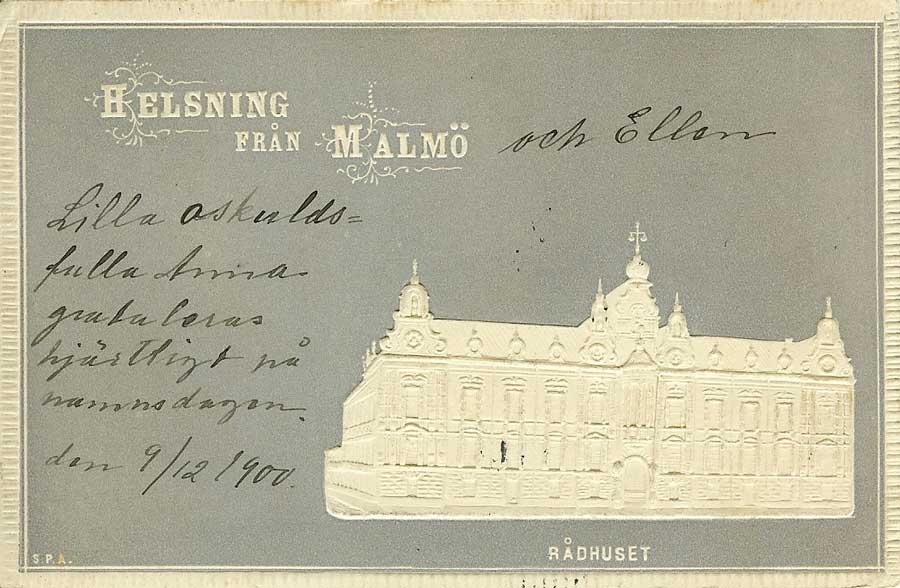 HELSNING
FRÅN MALMÖ och Ellen
Lilla oskulds=
fulla Anna
gratuleras
hjärtligt på
namnsdagen.
den 9/12 1900.
RÅDHUSET
S.P.A.